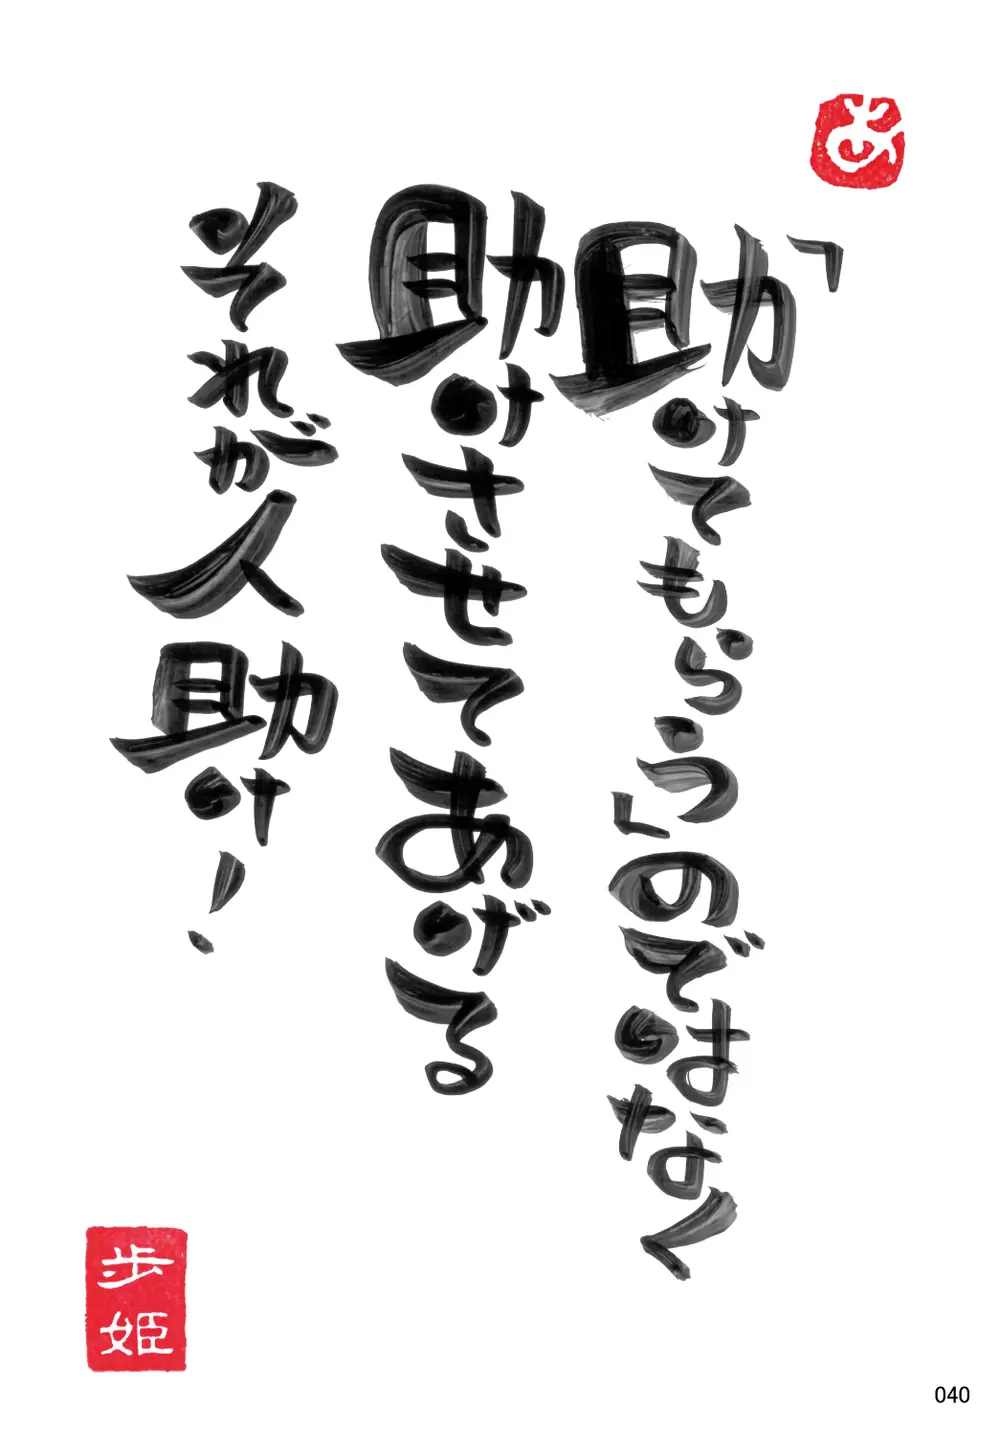 あ
「助けてもらう」のではなく
助けさせてあげる
それが人助け!
歩姫
040